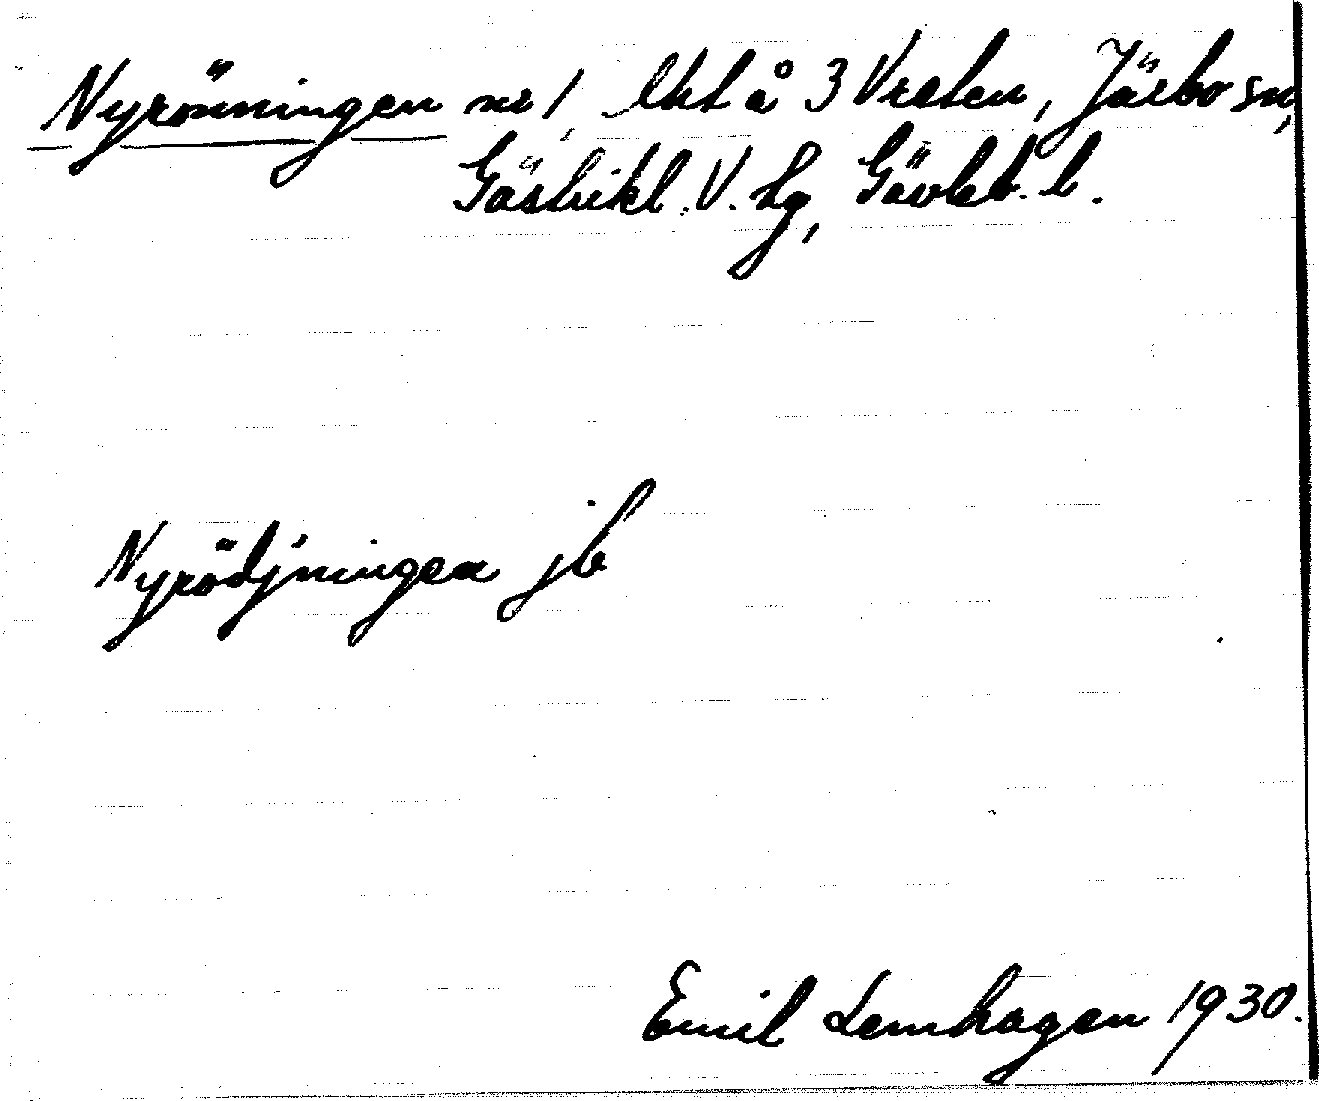 Nyrönningen nr 1, lht å 3 Vreten, Järbo sn,
Gästrikl. V. tg, Gävleb. l.
Nyrödjningen jb
Emil Lemhagen 1930.